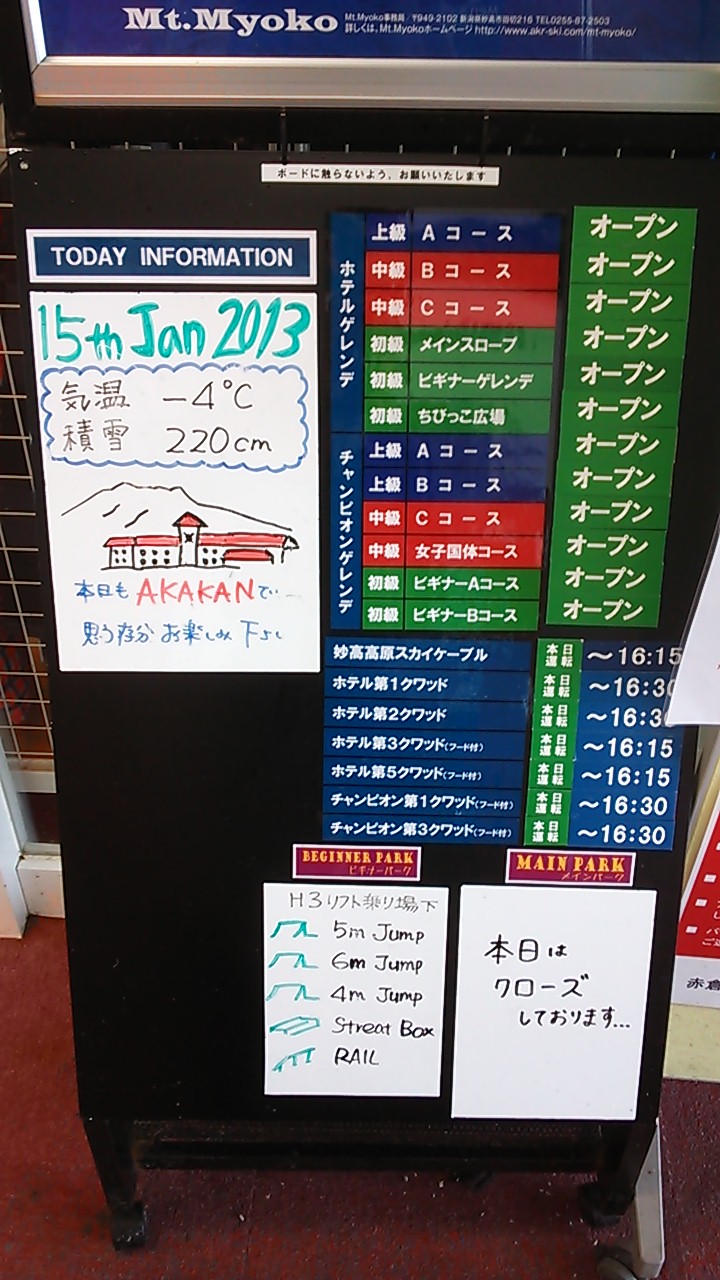 Mt.Myoko
Mt.Myoko事務局/〒949-2102 新潟県妙高市田切216 TEL0255-87-2503
詳しくは、Mt.Myokoホームページ http://www.akr-ski.com/mt-myoko/
ボードに触らないよう、お願いいたします
TODAY INFORMATION
15th Jan 2013
気温 -4℃
積雪 220cm
本日も AKAKANで
思う存分 お楽しみ 下さい
ホテルゲレンデ
上級 Aコース オープン
中級 Bコース オープン
中級 Cコース オープン
初級 メインスロープ オープン
初級 ビギナーゲレンデ オープン
初級 ちびっこ広場 オープン
チャンピオンゲレンデ
上級 Aコース オープン
上級 Bコース オープン
中級 Cコース オープン
中級 女子国体コース オープン
初級 ビギナーAコース オープン
初級 ビギナーBコース オープン
妙高高原スカイケーブル 本日運転 〜16:15
ホテル第1クワッド 本日運転 〜16:30
ホテル第2クワッド 本日運転 〜16:3
ホテル第3クワッド(フード付) 本日運転 〜16:15
ホテル第5クワッド(フード付) 本日運転 〜16:15
チャンピオン第1クワッド(フード付) 本日運転 〜16:30
チャンピオン第3クワッド(フード付) 本日運転 〜16:30
BEGINNER PARK
ビギナーパーク
H3リフト乗り場下
5m Jump
6m Jump
4m Jump
Streat Box
RAIL
MAIN PARK
メインパーク
本日は
クローズ
しております...
赤倉